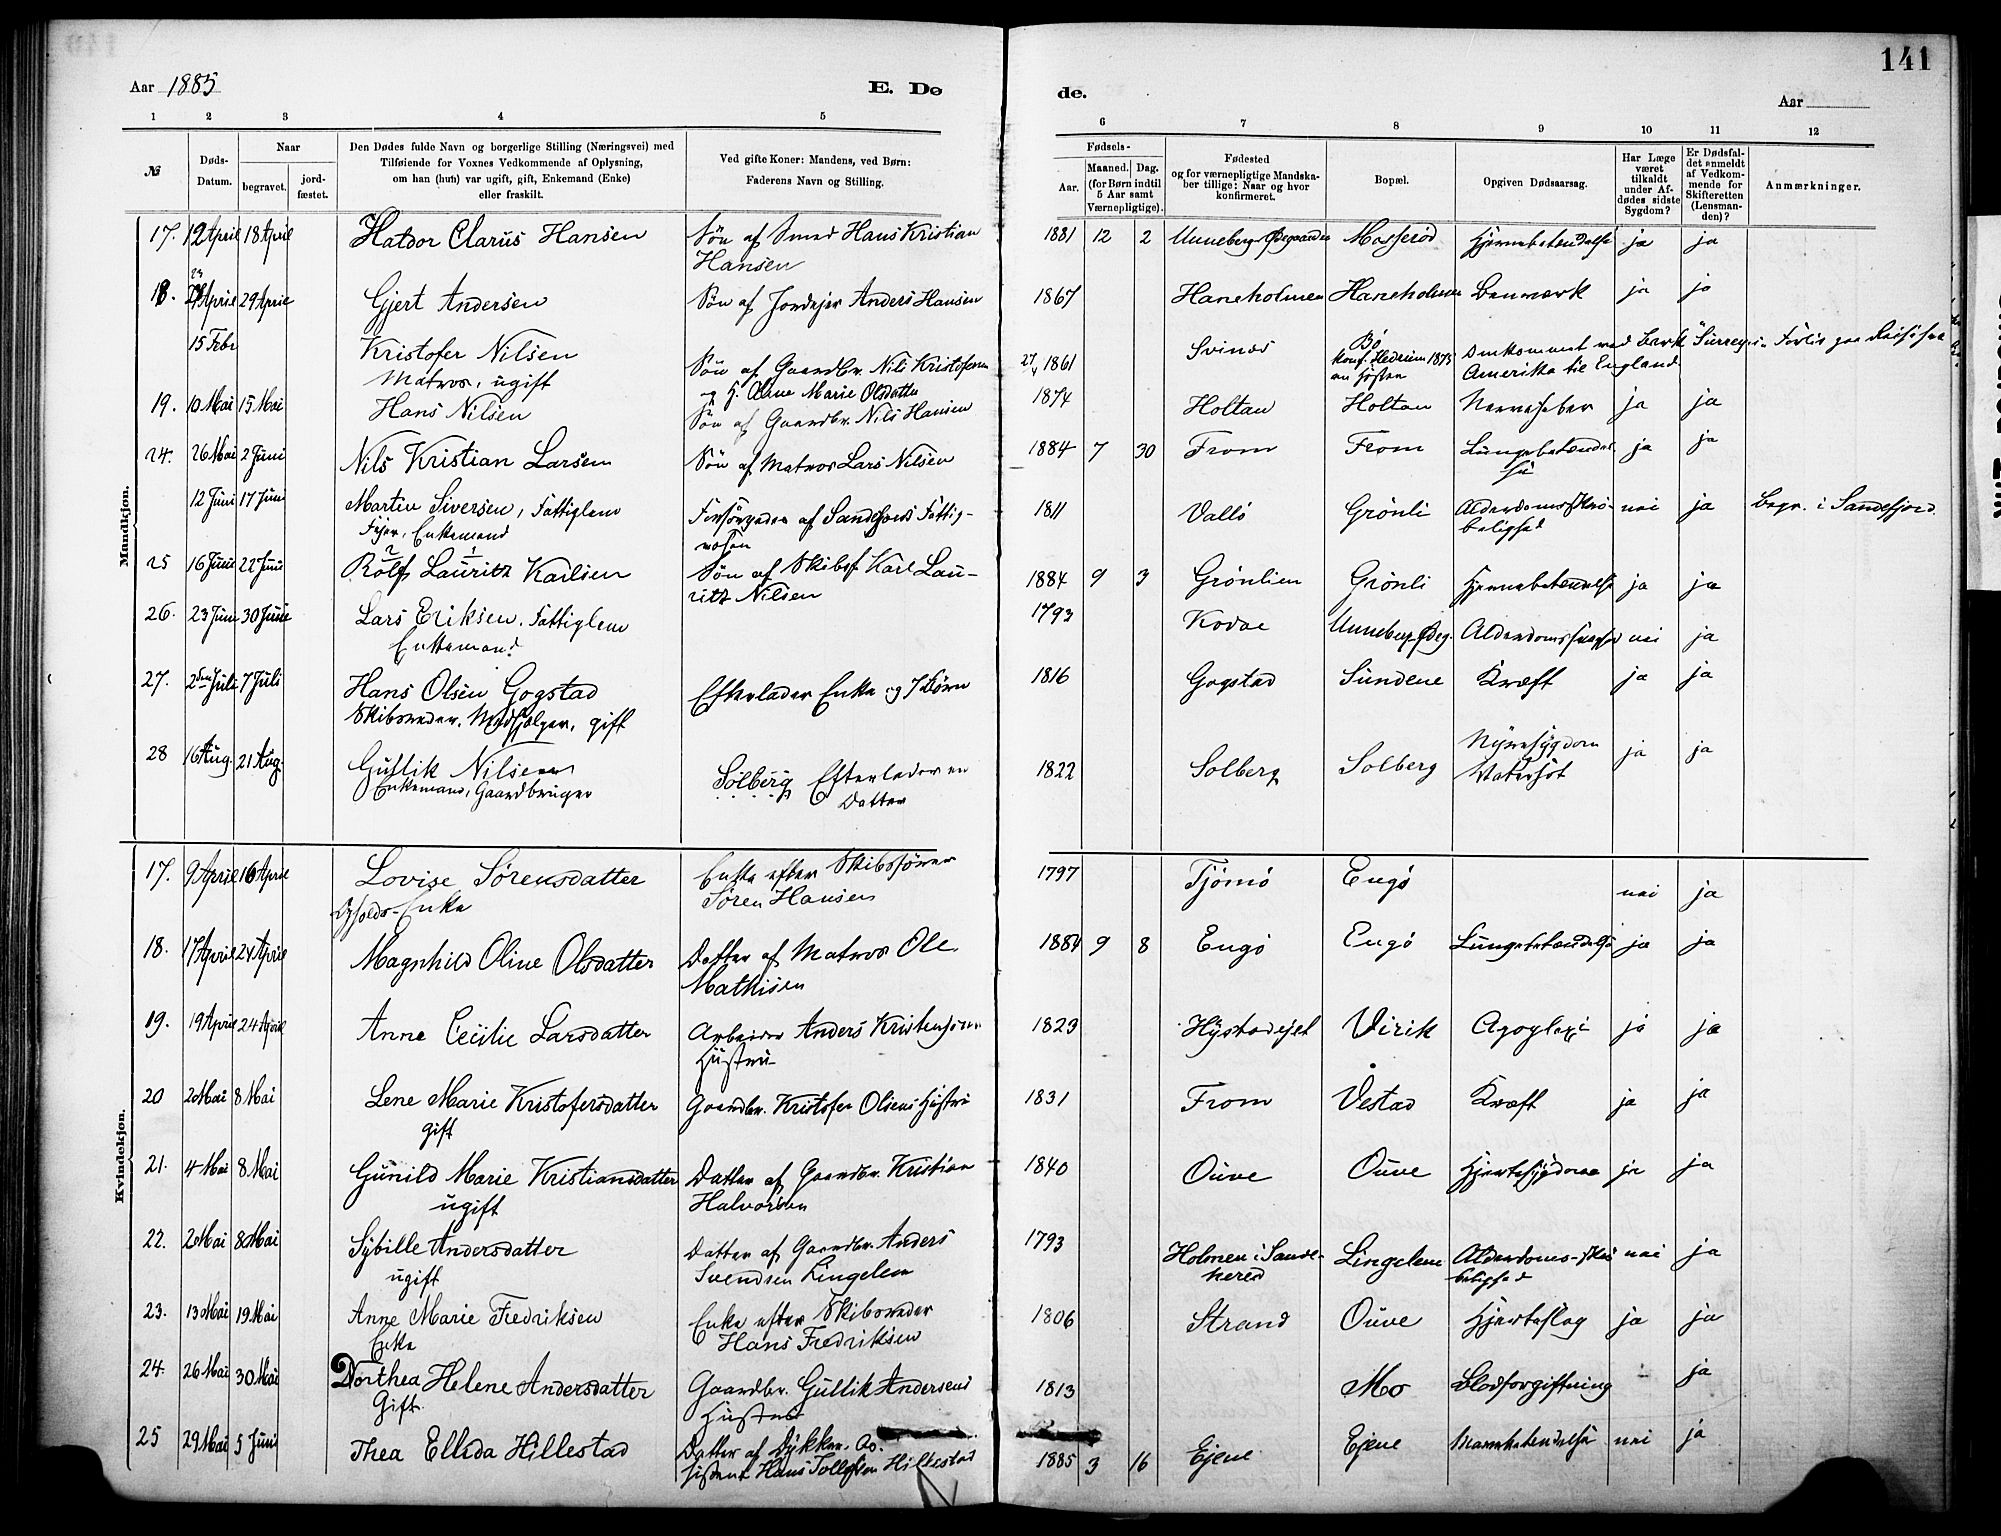 141
Aar 1885
E. Dø
de.
Aar
1 2 3 4 5 6 7 8 9 10 11 12
№
Døds-Datum.
Naar
begravet.
jord-fæstet.
Den Dødes fulde Navn og borgerlige Stilling (Næringsvei) med
Tilføiende for Voxnes Vedkommende af Oplysning,
om han (hun) var ugift, gift, Enkemand (Enke)
eller fraskilt.
Ved gifte Koner: Mandens, ved Børn:
Faderens Navn og Stilling.
Fødsels-
Aar.
Maaned. Dag.
(for Børn indtil
5 Aar samt
Værnepligtige).
Fødested
og for værnepligtige Mandska-
ber tillige: Naar og hvor
konfirmeret.
Bopæl.
Opgiven Dødsaarsag.
Har Læge
været
tilkaldt
under Af-
dødes sidste
Sygdom?
Er Dødsfal-
det anmeldt
af Vedkom-
mende for
Skifteretten
(Lensman-
den)?
Anmærkninger.
Mandkjøn.
17. 12 April 18 April Haldor Clarus Hansen Søn af Smed Hans Kristian 1881 12 2 Unneberg Ødegaarden Mosserød Hjernebetændelse ja ja
Hansen
18. April 29 April Gjert Andersen Søn af Jordejer Anders Hansen 1867 Haneholmen Haneholmen ja ja
15 Febr Kristofer Nilsen Søn af Gaardbr. Nils Kristofersen 27/4 1861 Svinås Bø Omkommet med Bark "Surrey" Forlis paa Reise fra
Matros, ugift og H. Anne Marie Olsdatter konf. Hedrum 1875 Amerika til England
19. 10 Mai 15 Mai Hans Nilsen Søn af Gaardbr. Nils Hansen 1874 Holtan Holtan Nervefeber ja ja
24. 26 Mai 2 Juni Nils Kristian Larsen Søn af Matros Lars Nilsen 1884 7 30 From From Lungebetændel-
se ja ja
12 Juni 17 Juni Martin Siversen, Fattiglem Forsørgedes af Sandefjords Fattig- 1811 Vallø Grönli Alderdomsskrö- nei ja Begr. i Sandefjord
Enkemand væsen belighed
25 16 Juni 22 Juni Rolf Lauritz Karlsen Søn af Skibsf. Karl Lau- 1884 9 3 Grönlien Grönli Hjernebetændelse ja ja
ritz Nilsen
26. 23 Juni 30 Juni Lars Eriksen. Fattiglem 1793 Kodal Unneberg Ødeg. Alderdomssvaghed nei ja
Enkemand
27. 2den Juli 7 Juli Hans Olsen Gogstad Efterlader Enke og 7 Børn 1816 Gogstad Sundene Kræft ja ja
Skibsreder, gift
28 16 Aug. 21 Aug. Gullik Nilsen Solberg Efterlader en 1822 Solberg Solberg Nyresygdom ja ja
Enkemand, Gaardbruger Datter Vatersot
Kvindekjøn.
17. 9 April 16 April Lovise Sørensdatter Enke efter Skibsfører 1797 Tjömö Engö nei ja
Enke Søren Hansen
18. 17 April 24 April Magnhild Oline Olsdatter Datter af Matros Ole 1884 9 8 Engö Engö Lungebetændelse ja ja
Mathisen
19. 19 April 24 April Anne Cecilie Larsdatter Arbeider Anders Kristensens 1823 Hystadejet Virik Apoplexi ja ja
Hustru
20 2 Mai 8 Mai Lene Marie Kristofersdatter Gaardbr. Kristofer Olsens Hustru 1831 From Vestad Kræft ja ja
gift
21. 4 Mai 8 Mai Gunild Marie Kristiansdatter Datter af Gaardbr. Kristian 1840 Ouve Ouve Hjertesygdom ja ja
ugift Halvorsen
22. 2 Mai 8 Mai Sybille Andersdatter Datter af Gaardbr. Anders 1793 Holmen i Sande- Lingelem Alderdoms-skrö- nei ja
ugift Svendsen Lingelem herred belighed
23. 13 Mai 19 Mai Anne Marie Fredriksen Enke efter Skibsreder 1806 Strand Ouve Hjerteslag ja ja
Enke Hans Fredriksen
24. 26 Mai 30 Mai Dorthea Helene Andersdatter Gaardbr. Gullik Andersens 1813 Mo Blodforgiftning ja
Gift. Hustru
25 29 Mai 5 Juni Thea Ellida Hillestad Datter af Dykker. As- 1885 3 16 Ejene Ejene Mavebetændelse nei ja
sistent Hans Tollefsen Hillestad